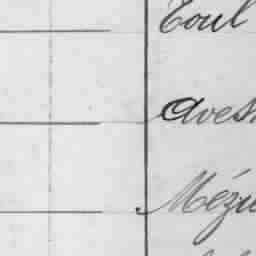 Toul
Aves
Mézi